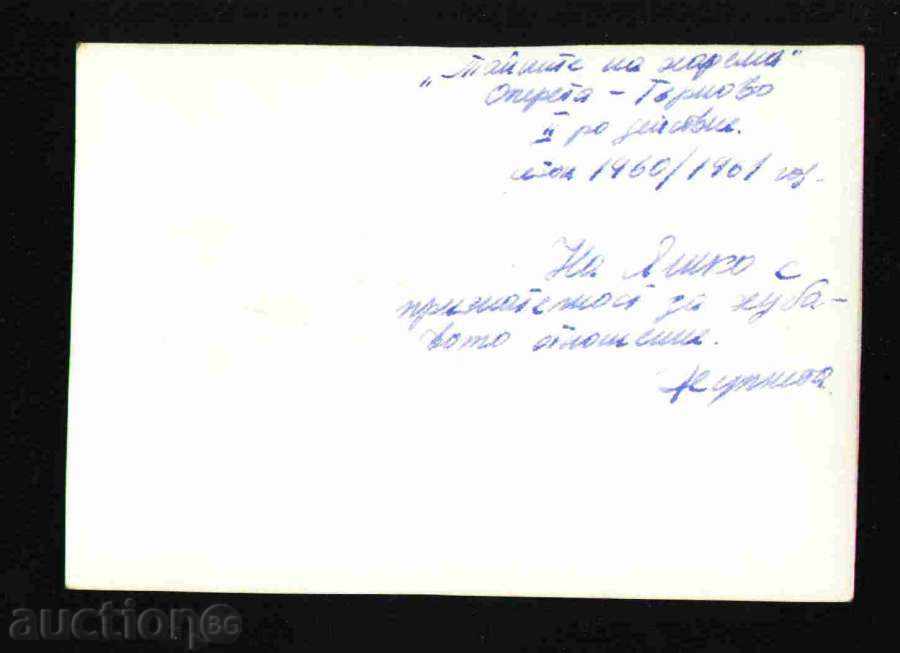 „Тайните на харема“
Оперета – Търново
II ро действие.
сезон 1960/1961 год.
На Яшко с
признателност за хуба-
вото отношение.
auction.BG